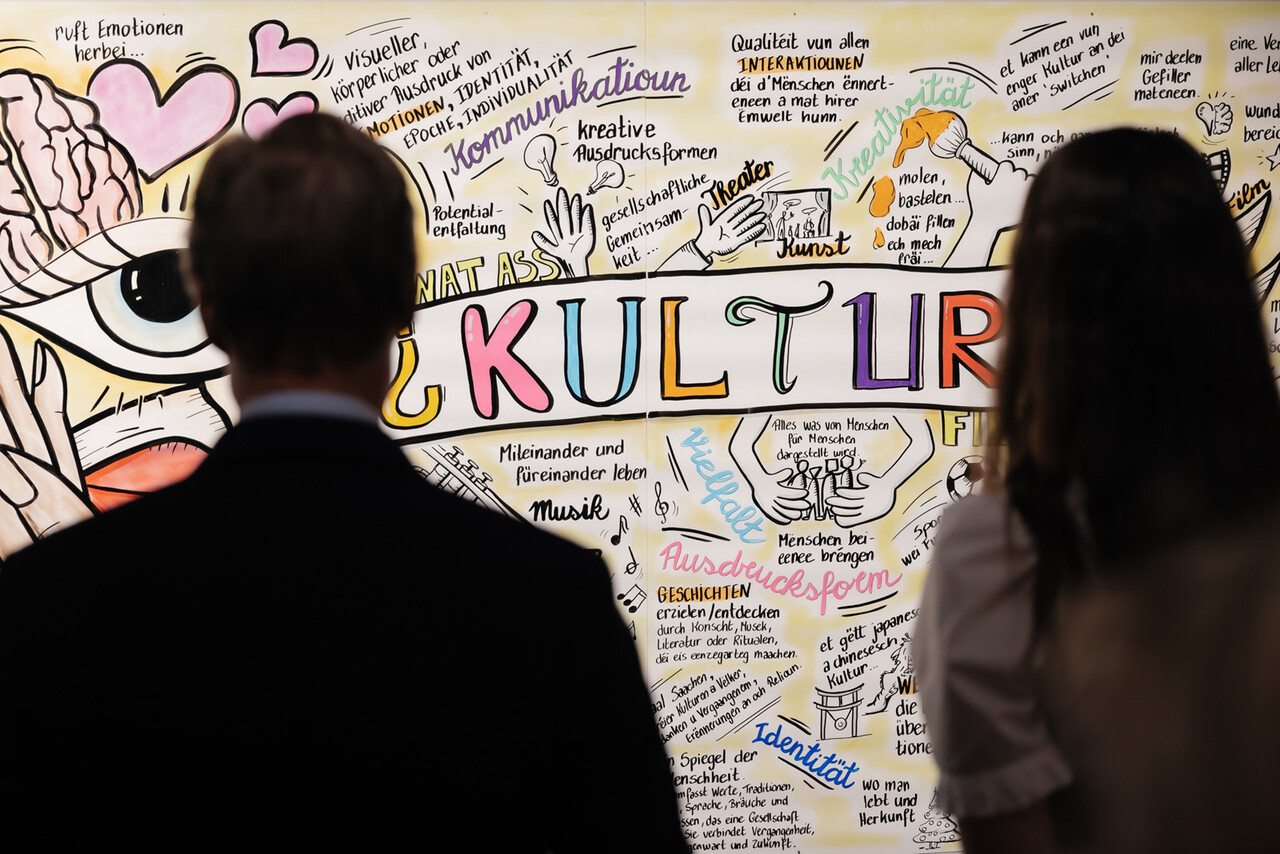 ruft Emotionen
herbei...
Visueller,
körperlicher oder
ditiver Ausdruck von
EMOTIONEN, IDENTITÄT,
EPOCHE, INDIVIDUALITÄT
Kommunikatioun
kreative
Ausdrucksformen
Potential-
entfaltung
gesellschaftliche
Gemeinsam-
keit
Theater
Kunst
Qualitéit vun allen
INTERAKTIOUNEN
déi d'Mënschen ënnert-
eneen a mat hirer
Ëmwelt hunn.
Kreativität
molen,
bastelen...
dobäi fillen
ech mech
fräi...
et kann een vun
enger Kultur an dei
aner 'switchen'
...kann och
sinn,
mir deelen
Gefiller
mateneen.
eine
aller
bereic
Film
WAT ASS
¿KULTUR
Miteinander und
füreinander leben
Musik
Vielfalt
Alles was von Menschen
für Menschen
dargestellt wird.
Mënschen bei-
eenee brëngen
Ausdrucksform
GESCHICHTEN
erzielen/entdecken
durch Konscht, Musek,
Literatur oder Ritualen,
déi eis eenzegarteg maachen.
et gëtt japanesc
a chinesesch
Kultur...
Saachen,
Kulturen a Vëlker,
u Vergaangenem,
Erënnerungen an och Relioun.
Identität
Spiegel der
enschheit.
mfasst Werte, Traditionen,
Sprache, Bräuche und
ssen, das eine Gesellschaft
Sie verbindet Vergangenheit,
enwart und Zukunft.
wo man
lebt und
Herkunft
die
über
tione